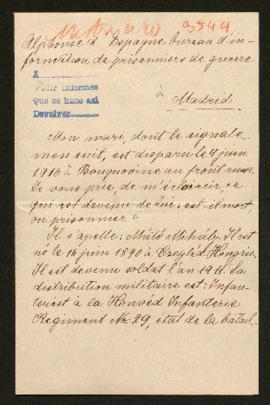 3549
Alphonse d'Espagne bureau d'in-
formation de prisonniers de guerre
A
Pedir informes
Que se hace así
Devolver
à
Madrid
Mon mari, dont le signale-
ment suit, est disparu le 4 juin
1916 à au front russe.
Je vous prie, de m'éclaircir, ce
qui est devenu de lui: est il mort,
ou prisonnier.
Il s'appelle: Mihály. Il est
né le 16 juin 1890 à Czegléd Hongrie.
Il est devenu soldat l'an 1911. La
distribution militaire est: Infan-
terist à la Honvéd Infanterie
Regiment Nr. 29, état de la batail-